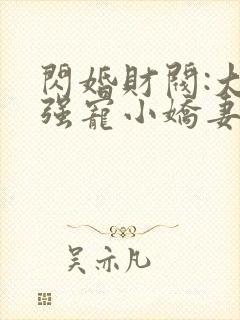 閃婚財閥:大
强寵小嬌妻
吴亦凡